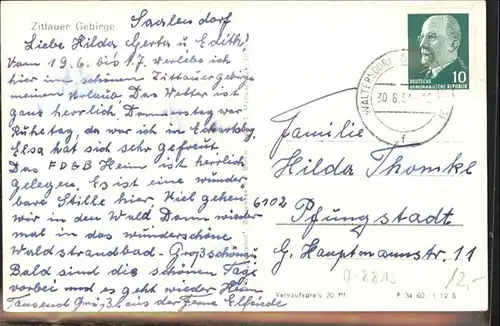 Zittauer Gebirge
Saalendorf
Liebe Hilda, Gerta u. Edith!
Vom 19.6. bis 1.7. verlebe ich
hier im schönen Zittauergebirge
meinen Urlaub. Das Wetter ist
ganz herrlich. Donnerstag war
Ruhetag, da war ich in
Elsa hat sich sehr gefreut.
Das FDGB Heim ist herrlich
gelegen. Es ist eine wunder-
bare Stille hier. Viel gehen
wir in den Wald Dann wieder
mal in das wunderschöne
Waldstrandbad - Großschönau
Bald sind die schönen Tage
vorbei und es geht wieder Heim
Tausend Grüße aus der Ferne Elfriede
DEUTSCHE
DEMOKRATISCHE REPUBLIK
10
WALTERSDORF
30.6.64
f
Familie
Hilda Thomke
6102
Pfungstadt
G. Hauptmannstr. 11
12,-
Verkaufspreis 20 Pf.